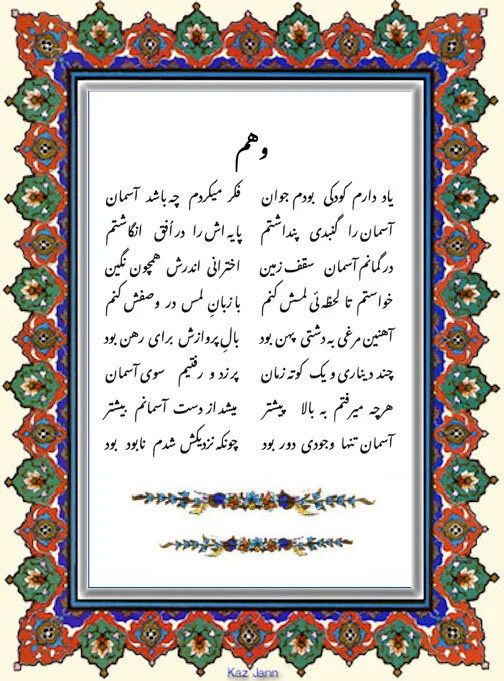 وهم
یاد دارم کودکی بودم جوان فکر میکردم چه باشد آسمان
آسمان را گنبدی پنداشتم پایه اش را در اُفق انگاشتم
در گمانم آسمان سقف زمین اخترانی اندرش همچون نگین
خواستم تا لحظه ئی لمسش کنم با زبانِ لمس در وصفش کنم
آهنین مرغی به دشتی پهن بود بالِ پروازش برای رهن بود
چند دیناری و یک کوته زمان پر زد و رفتیم سوی آسمان
هرچه میرفتم به بالا پیشتر میشد از دست آسمانم بیشتر
آسمان تنها وجودی دور بود چونکه نزدیکش شدم نابود بود
Kaz Jann